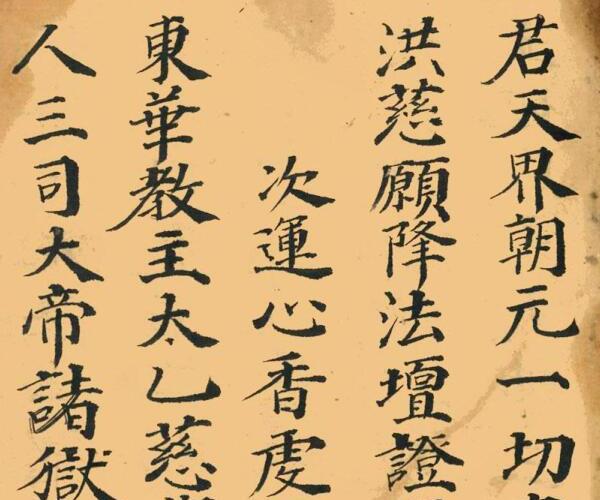 君天界朝元一切
洪慈願降法壇證
次運心香虔
東華教主太乙慈
人三司大帝諸獄